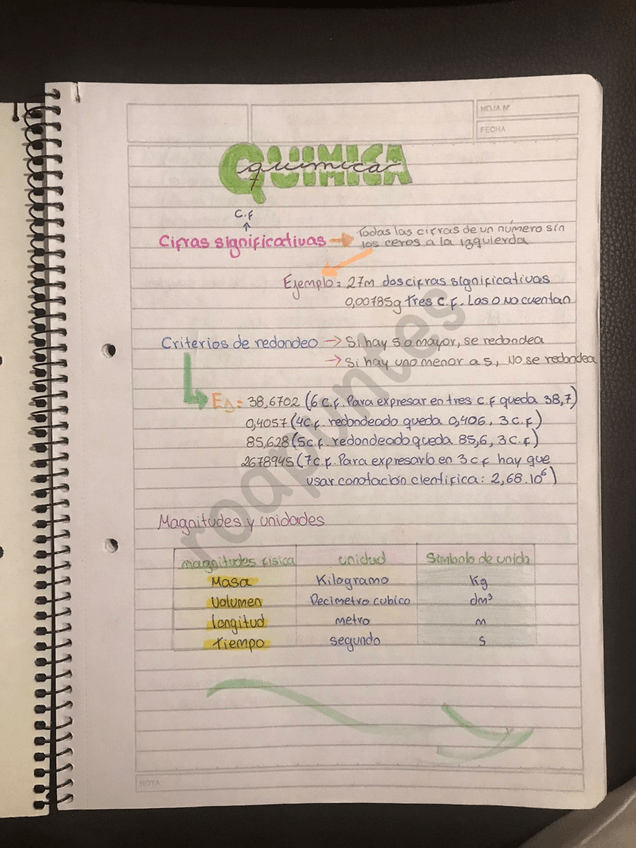 HOJA Nº
FECHA
QUIMICA
química
C.F
Cifras significativas → Todas las cifras de un número sin
los ceros a la izquierda
Ejemplo: 27m dos cifras significativas
0,00785g Tres C.F. Los 0 No cuentan
Criterios de redondeo → Si hay 5 o mayor, se redondea
→ Si hay uno menor a 5, No se redondea
Ej: 38,6702 (6 C.F. Para expresar en tres C.F queda 38,7)
0,4057 (4C.F. redondeado queda 0,406, 3 C.F)
85,628 (5c.F. redondeado queda 85,6, 3 C.F)
2678945 (7 C.F. Para expresarlo en 3 c.F hay que
usar conotación científica: 2,68.10⁶)
Magnitudes y unidades
magnitudes Física unidad Símbolo de unida
Masa Kilogramo Kg
Volumen Decimetro cubico dm³
longitud metro m
Tiempo segundo s
NOTA
roapuntes